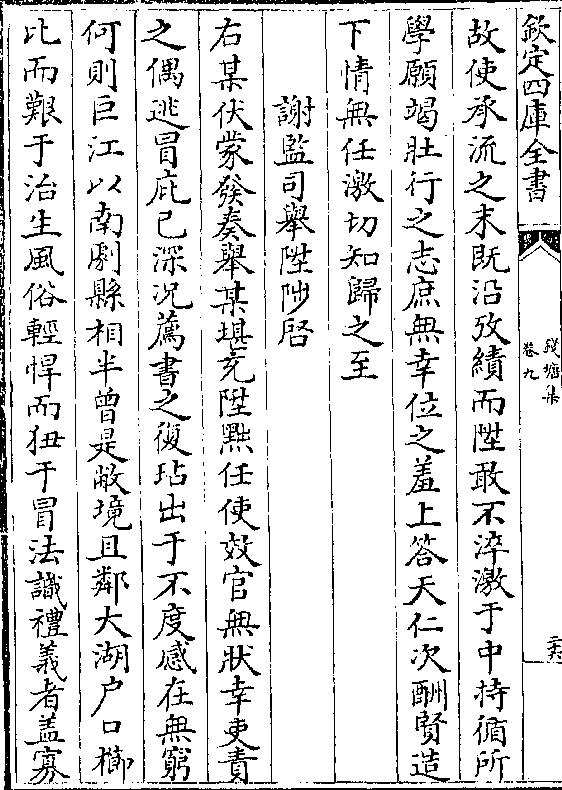 欽定四庫全書
錢塘集
卷九
二六
故使承流之末既沿攷績而陞敢不淬激于中持循所
學願竭壯行之志庶無幸位之羞上答天仁次酬賢造
下情無任激切知歸之至
謝監司舉陞陟啓
右某伏蒙發奏舉某堪充陞黜任使效官無狀幸吏責
之偶逃冒庇已深况薦書之復玷出于不度感在無窮
何則巨江以南劇縣相半曾是敝境且鄰大湖户口櫛
比而艱于治生風俗輕悍而狃于冒法識禮義者盖寡